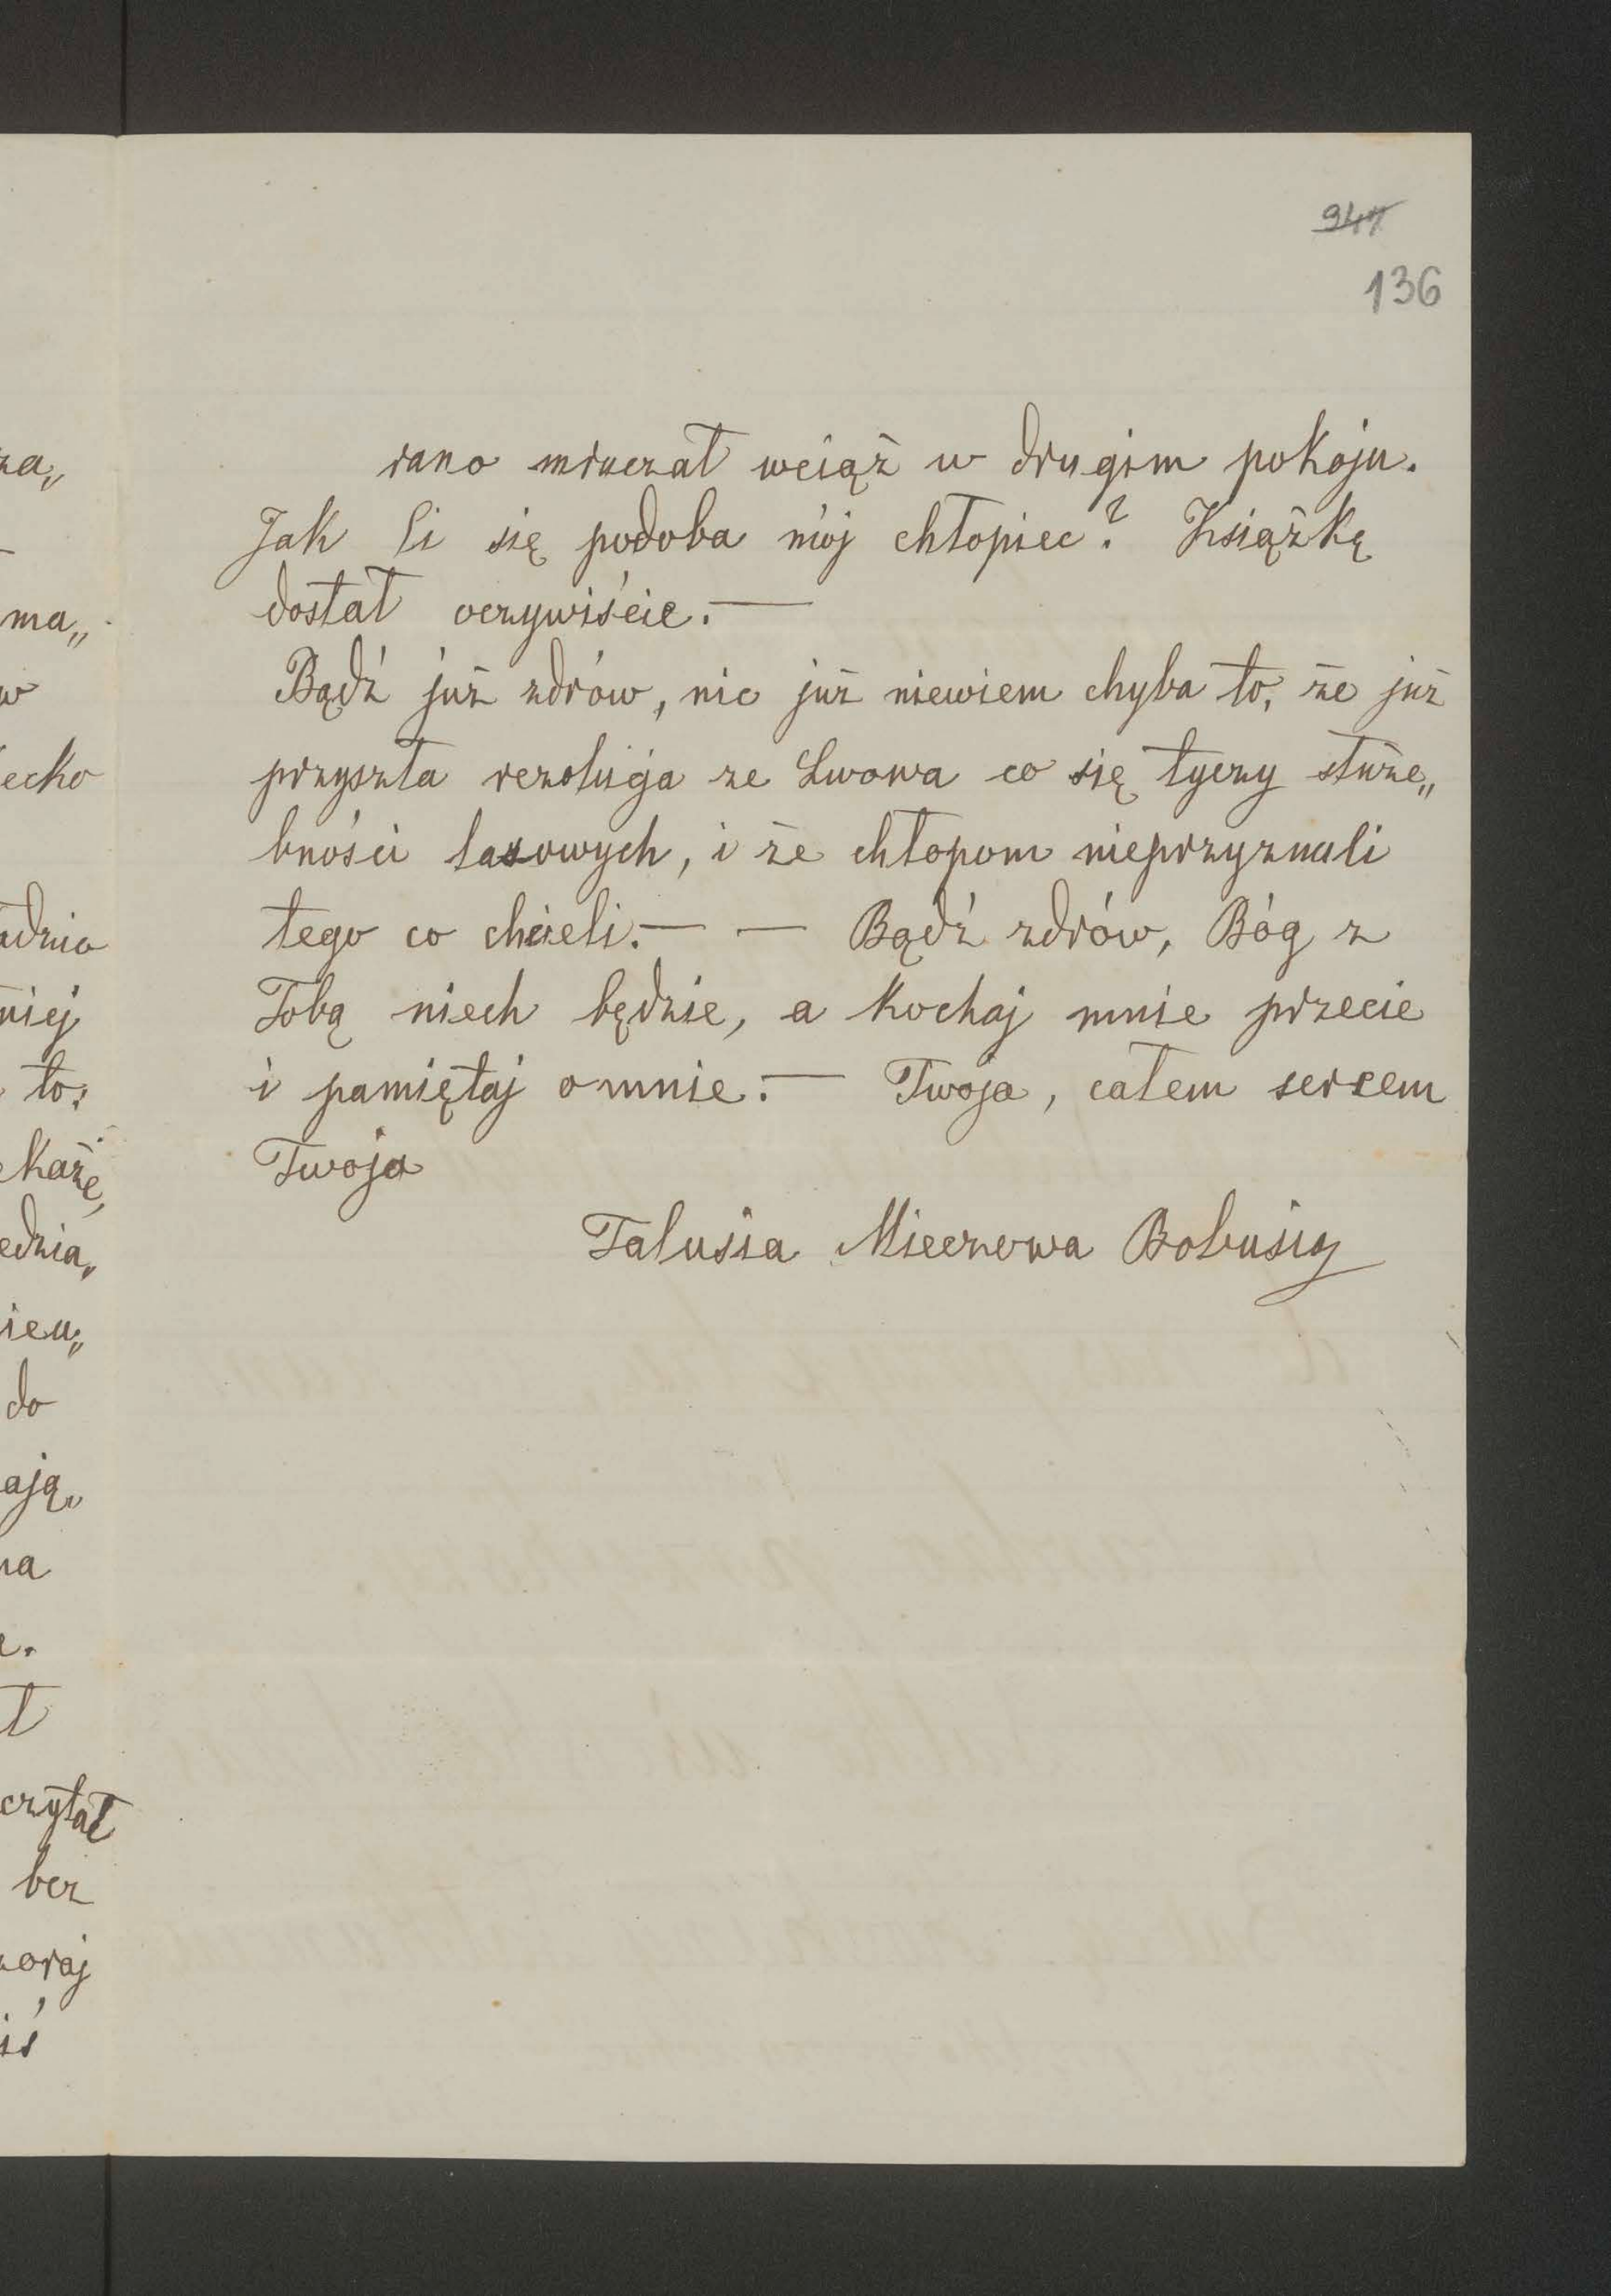 947
136
rano mruczał wciąż w drugim pokoju.
Jak Ci się podoba mój chłopiec? Książkę
dostał oczywiście. —
Bądź już zdrów, nic już niewiem chyba to, że już
przyszła rezolucja ze Lwowa co się tyczy służe„
bności lasowych, i że chłopom nieprzyznali
tego co chcieli. — — Bądź zdrów, Bóg z
Tobą niech będzie, a kochaj mnie przecie
i pamiętaj o mnie. — Twoja, całem sercem
Twoja
Talusia Mieczowa Bobusią
za„
ma„
w
ecko
adnia
niej
to:
każe,
edzia„
ieu„
do
ają„
na
e.
ł
czytał
bez
zoraj
iś